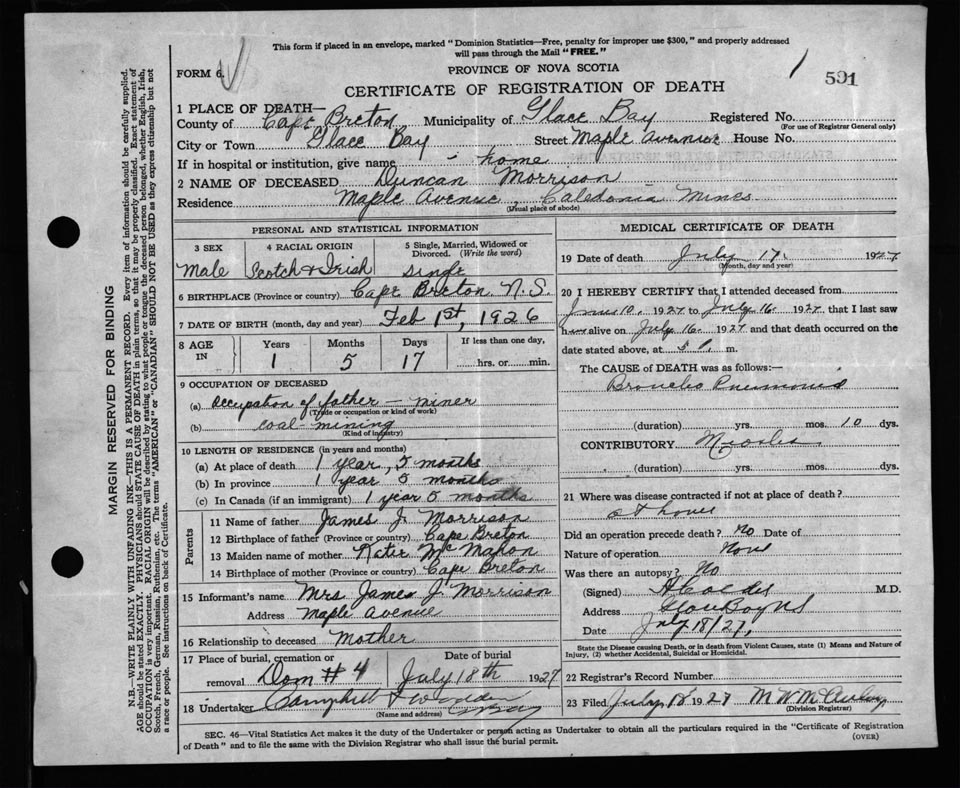 This form if placed in an envelope, marked "Dominion Statistics—Free, penalty for improper use $300," and properly addressed
will pass through the Mail "FREE."
FORM 6.
PROVINCE OF NOVA SCOTIA
1
591
CERTIFICATE OF REGISTRATION OF DEATH
1 PLACE OF DEATH—
County of Cape Breton Municipality of Glace Bay Registered No.
(For use of Registrar General only)
City or Town Glace Bay Street Maple Avenue House No.
If in hospital or institution, give name - home
2 NAME OF DECEASED Duncan Morrison
Residence Maple Avenue, Caledonia Mines
(Usual place of abode)
PERSONAL AND STATISTICAL INFORMATION
3 SEX 4 RACIAL ORIGIN 5 Single, Married, Widowed or
Divorced. (Write the word)
Male Scotch & Irish Single
6 BIRTHPLACE (Province or country) Cape Breton N.S.
7 DATE OF BIRTH (month, day and year) Feb 1st, 1926
8 AGE IN Years Months Days If less than one day,
1 5 17 hrs. or min.
9 OCCUPATION OF DECEASED
(a) Occupation of father — miner
(Trade or occupation or kind of work)
(b) coal mining
(Kind of industry)
10 LENGTH OF RESIDENCE (in years and months)
(a) At place of death 1 year, 5 months
(b) In province 1 year 5 months
(c) In Canada (if an immigrant) 1 year 5 months
Parents
11 Name of father James J. Morrison
12 Birthplace of father (Province or country) Cape Breton
13 Maiden name of mother Katie McMahon
14 Birthplace of mother (Province or country) Cape Breton
15 Informant's name Mrs James J. Morrison
Address Maple Avenue
16 Relationship to deceased Mother
17 Place of burial, cremation or Date of burial
removal Dom # 4 July 18th 1927
18 Undertaker Campbell &
(Name and address)
MEDICAL CERTIFICATE OF DEATH
19 Date of death July 17. 1927
(Month, day and year)
20 I HEREBY CERTIFY that I attended deceased from
10. 1927 to July 16. 1927, that I last saw
h alive on July 16. 1927 and that death occurred on
date stated above, at 5 m.
The CAUSE of DEATH was as follows:—
Broncho Pneumonia
(duration) yrs. mos. 10 dys.
CONTRIBUTORY Measles
(duration) yrs. mos. dys.
21 Where was disease contracted if not at place of death?
at home
Did an operation precede death? No Date of
Nature of operation None
Was there an autopsy? No
(Signed) M.D.
Address Glace Bay NS
Date July 18/27,
State the Disease causing Death, or in death from Violent Causes, state (1) Means and Nature of
Injury, (2) whether Accidental, Suicidal or Homicidal.
22 Registrar's Record Number
23 Filed July 18 1927 M W
(Division Registrar)
SEC. 46—Vital Statistics Act makes it the duty of the Undertaker or person acting as Undertaker to obtain all the particulars required in the "Certificate of Registration
of Death" and to file the same with the Division Registrar who shall issue the burial permit.
(OVER)
MARGIN RESERVED FOR BINDING
N.B.—WRITE PLAINLY WITH UNFADING INK—THIS IS A PERMANENT RECORD. Every item of information should be carefully supplied.
AGE should be stated EXACTLY. PHYSICIANS should STATE CAUSE OF DEATH in plain terms, so that it may be properly classified. Exact statement of
OCCUPATION is very important. RACIAL ORIGIN will be described by stating to what people or tongue the deceased person belonged, whether English, Irish,
Scotch, French, German, Russian, Ruthenian, etc. The terms "AMERICAN" or "CANADIAN" SHOULD NOT BE USED as they express citizenship but not
a race or people. See instructions on back of Certificate.